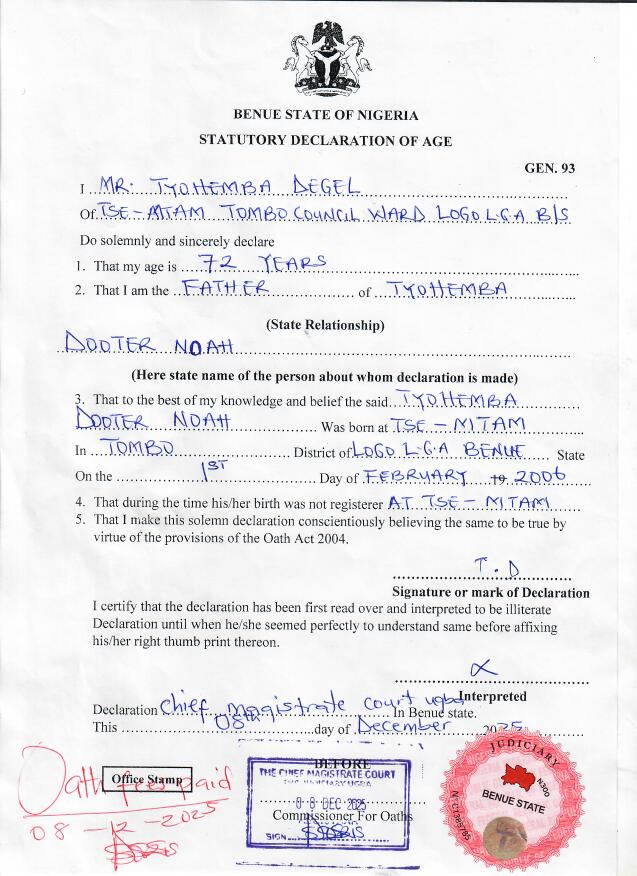 BENUE STATE OF NIGERIA
STATUTORY DECLARATION OF AGE
GEN. 93
I MR. TYOHEMBA DEGEL
Of. TSE-MITAM TOMBO COUNCIL WARD LOGO L.G.A B/S
Do solemnly and sincerely declare
1. That my age is 72 YEARS
2. That I am the FATHER of TYOHEMBA
(State Relationship)
DOOTER NOAH
(Here state name of the person about whom declaration is made)
3. That to the best of my knowledge and belief the said TYOHEMBA
DOOTER NOAH Was born at TSE-MITAM
In TOMBO District of LOGO L.G.A BENUE State
On the 1ST Day of FEBRUARY 19 2006
4. That during the time his/her birth was not registerer AT TSE-MITAM
5. That I make this solemn declaration conscientiously believing the same to be true by
virtue of the provisions of the Oath Act 2004.
T.D
Signature or mark of Declaration
I certify that the declaration has been first read over and interpreted to be illiterate
Declaration until when he/she seemed perfectly to understand same before affixing
his/her right thumb print thereon.
Interpreted
Declaration Chief magistrate court ugba In Benue state.
This 08th day of December 2025
Oath fees paid
08-12-2025
Office Stamp
BEFORE
THE CHIEF MAGISTRATE COURT
THE JUDICIARY UGBA
08 DEC 2025
Commissioner For Oaths
SIGN
JUDICIARY
N300
BENUE STATE